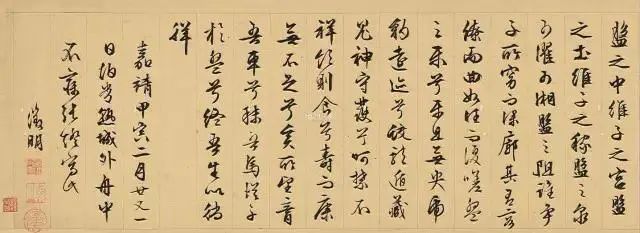 盤之中維子之宮盤
之土維子之稼盤之泉
可濯可湘盤之阻誰爭
子所窈而深廓其有容
繚而曲如往而復嗟盤
之樂兮樂且無央虎
豹遠迹兮蛟龍遁藏
鬼神守護兮呵禁不
祥飲則食兮壽而康
無不足兮奚所望膏
吾車兮秣吾馬從子
於盤兮終吾生以徜
徉
嘉靖甲寅二月廿又一
日城外舟中
不寐燈寫此
徵明